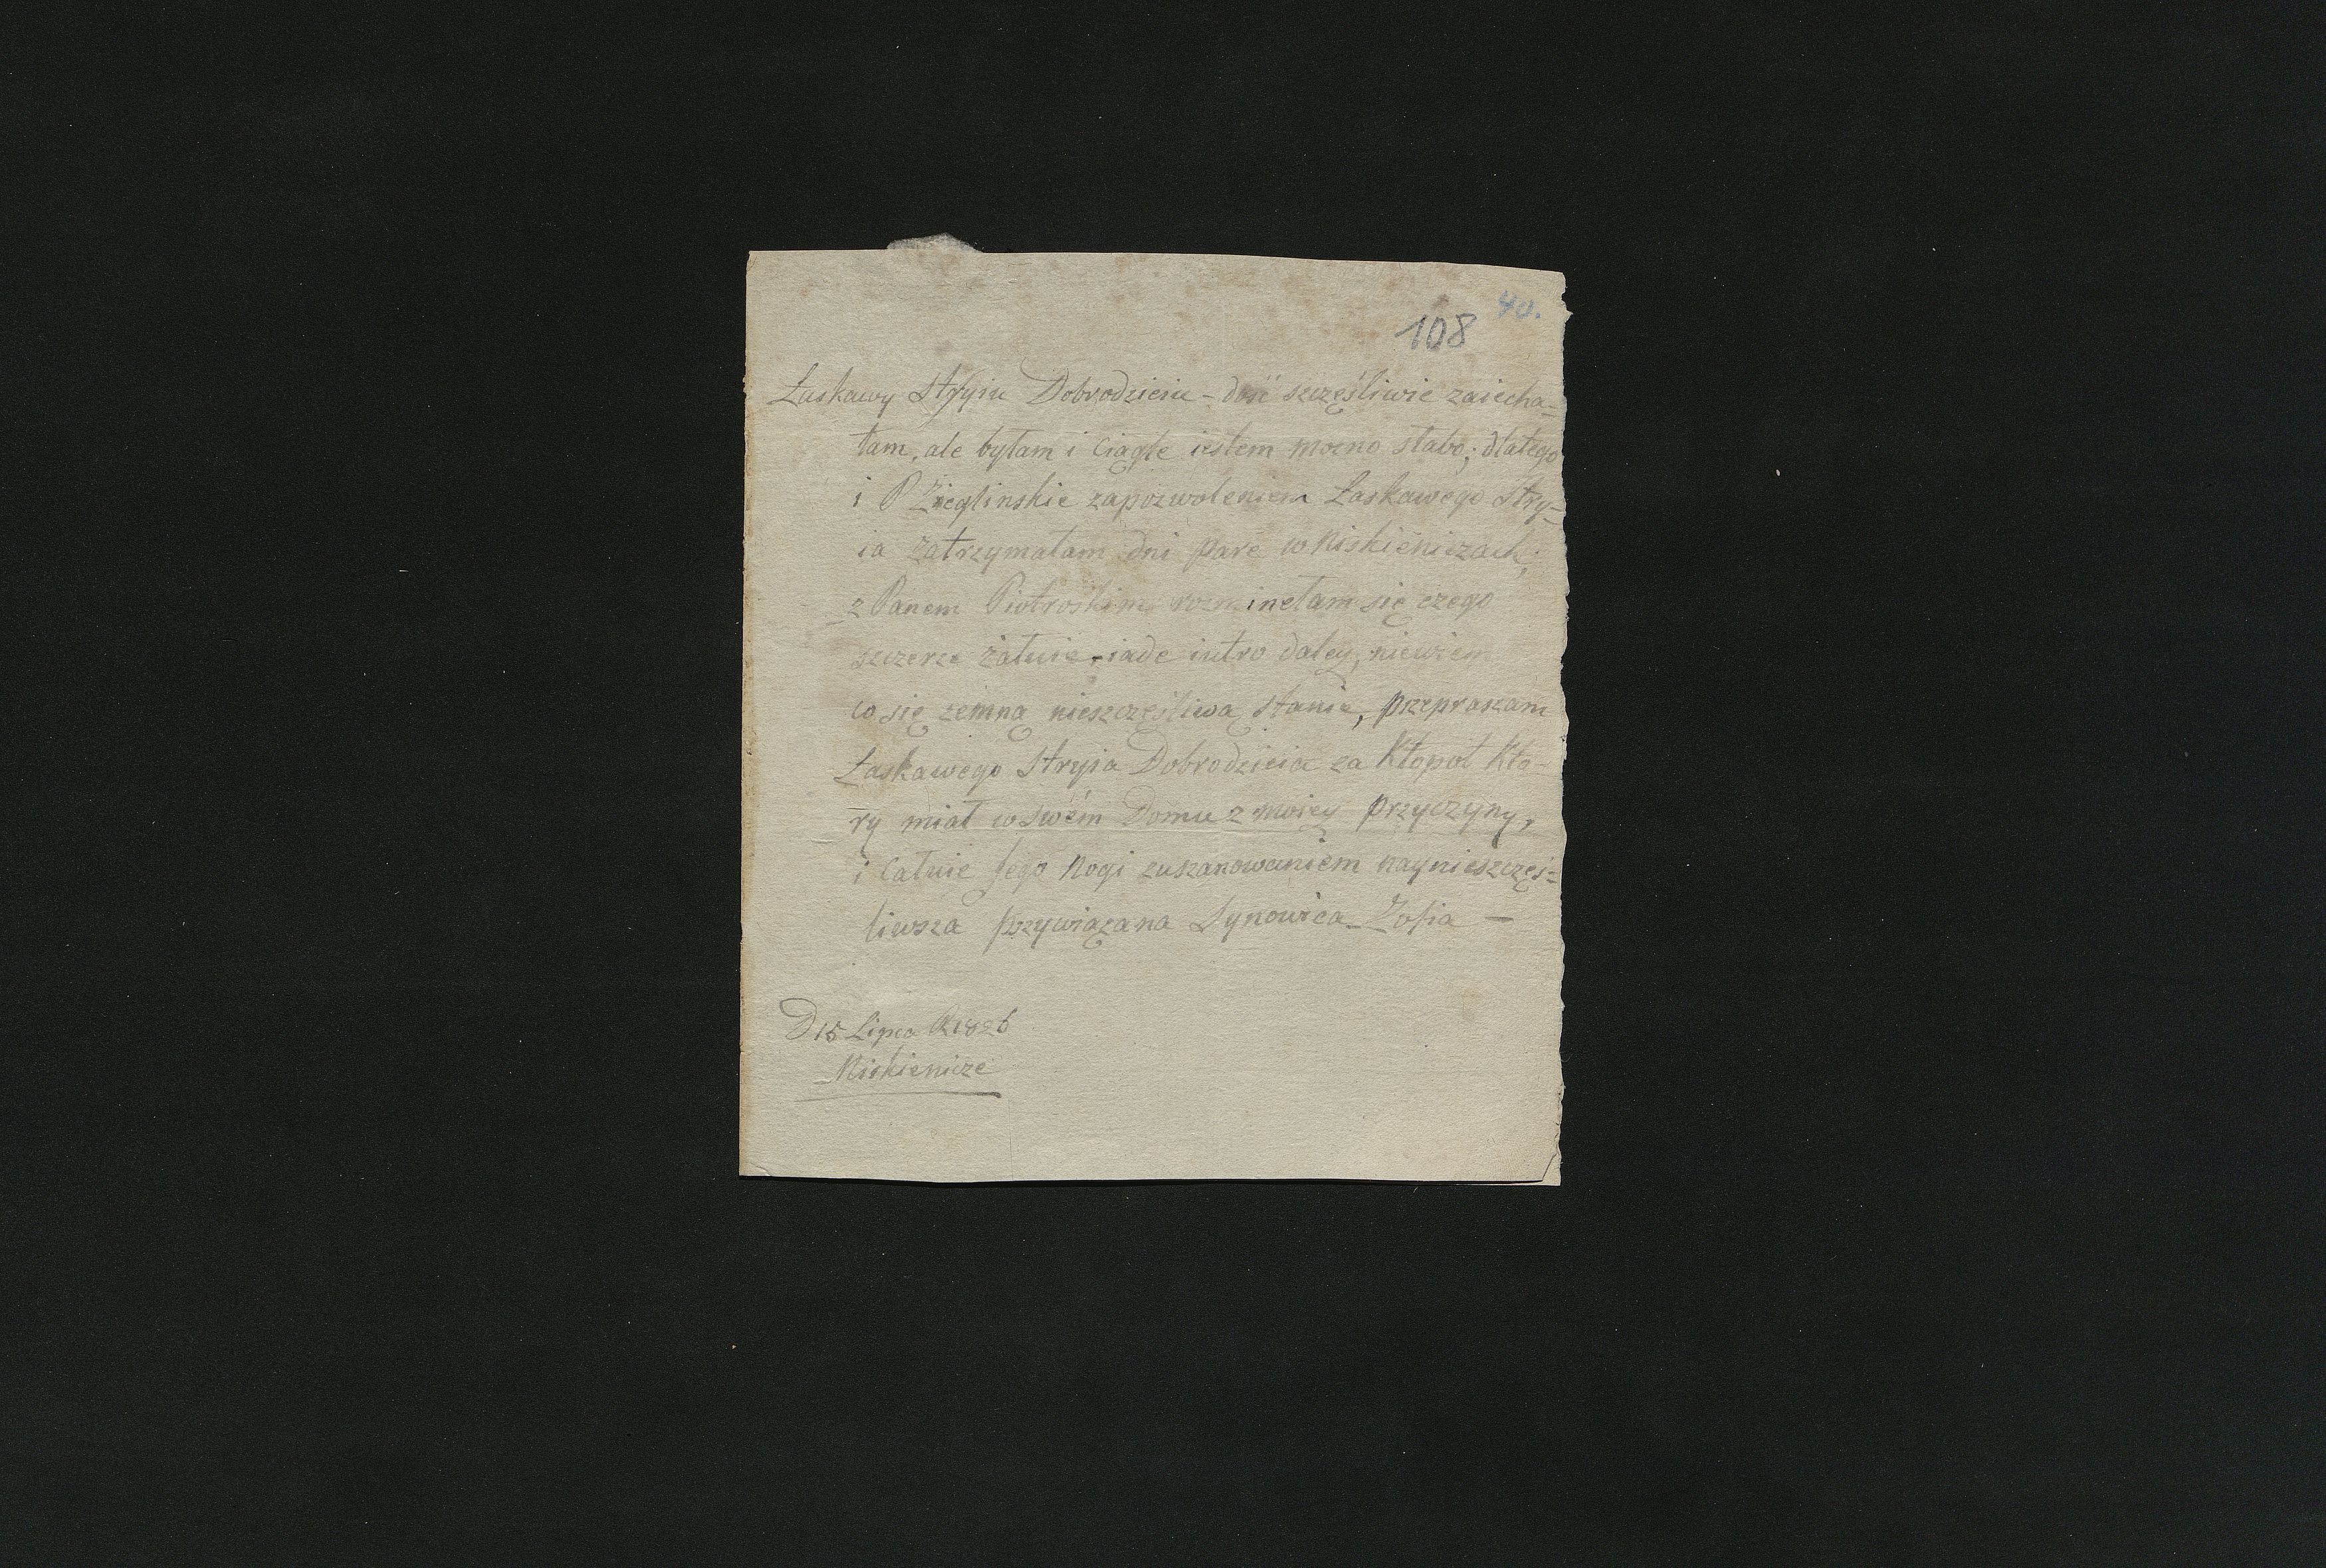 40.
108
Łaskawy Stryiu Dobrodzieiu - dość szczęśliwie zaiecha=
łam, ale byłam i ciągle iestem mocno słabo; dlatego
i P Zieglinskie zapozwoleniem Łaskawego Stry=
ia zatrzymałam dni parę w Niskieniczach;
z Panem Piotroskim rozminełam się czego
szczerze żałuie, iade iutro daley, niewiem
co się zemną nieszczęśliwą stanie, przepraszam
Łaskawego Stryia Dobrodzieia za Kłopot Któ-
ry miał w swém Domu z moiey przyczyny,
i Całuie Jego Nogi zuszanowaniem naynieszczęś=
liwsza przywiązana Synowica Zofia —
D 15 Lipca R 1826
Niskienicze